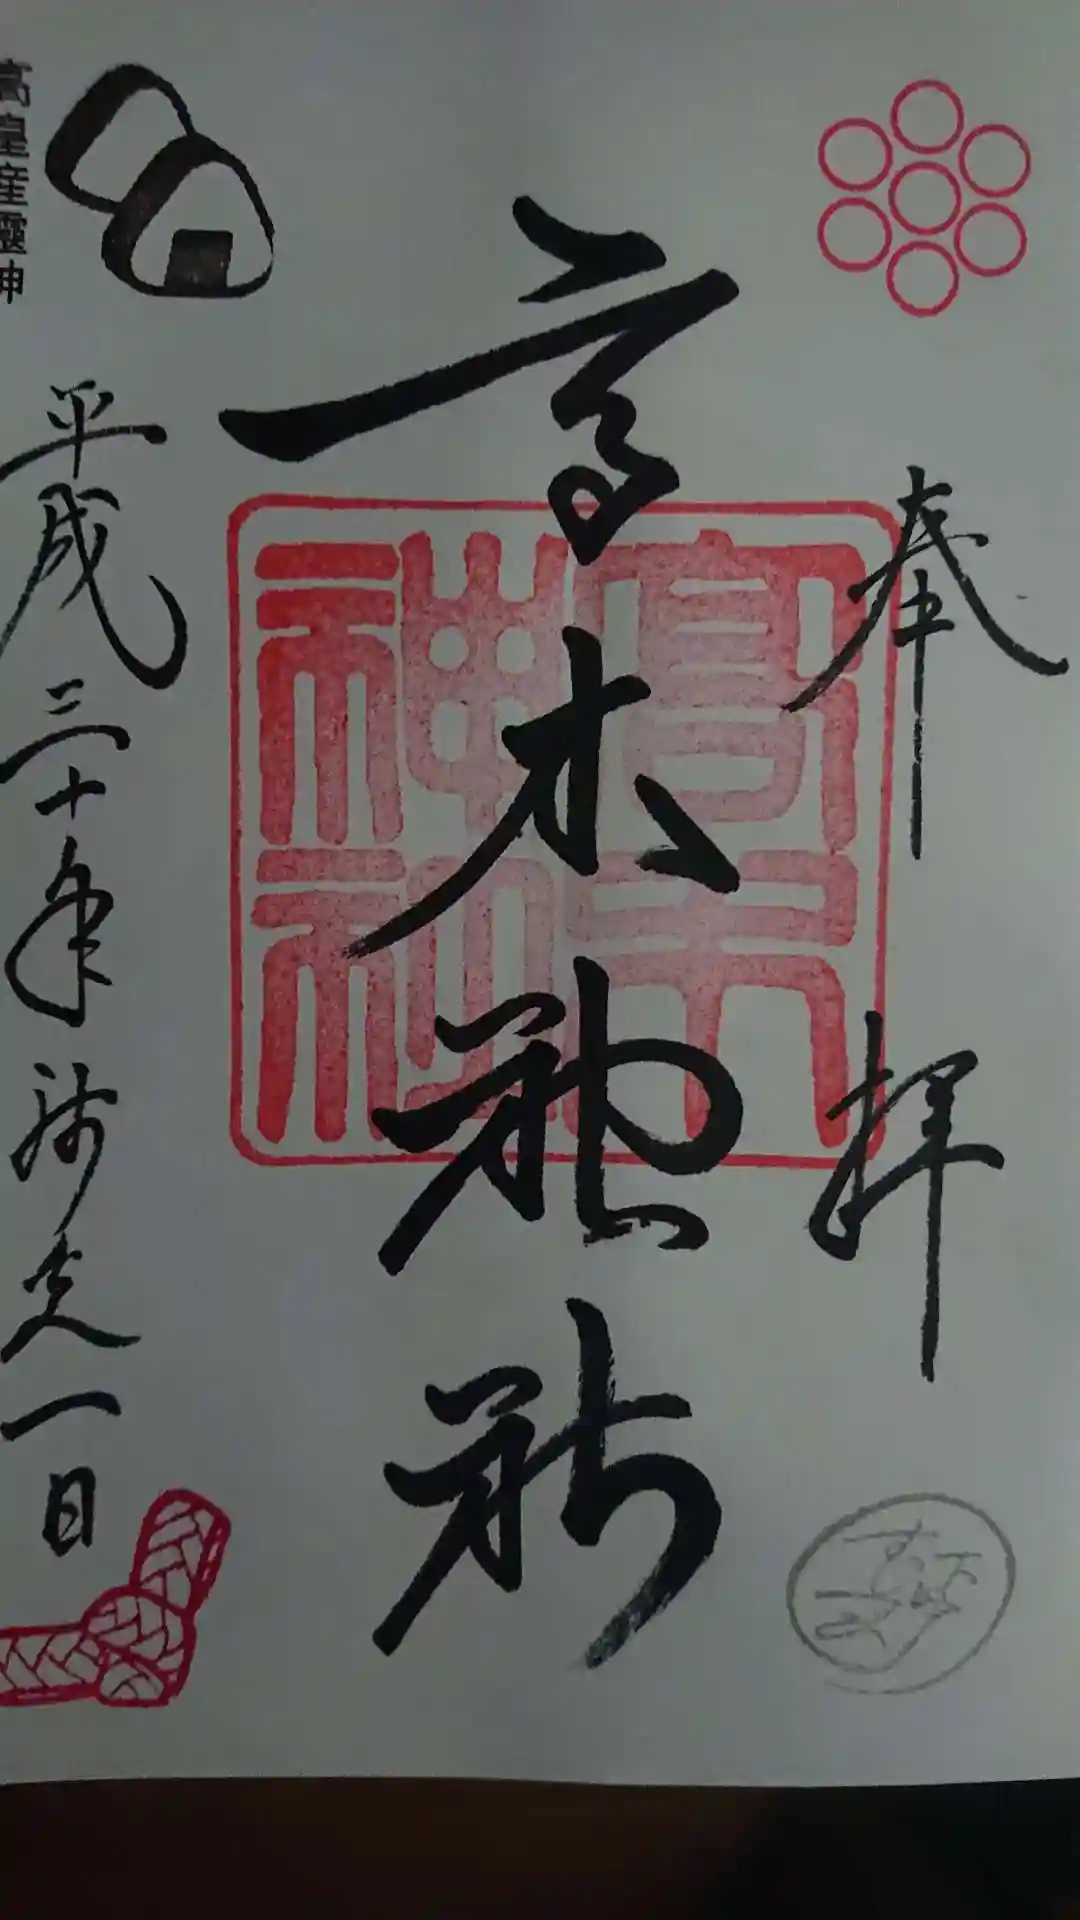 奉拝
高木神社
高木神社
平成三十年師走一日
高皇産靈神